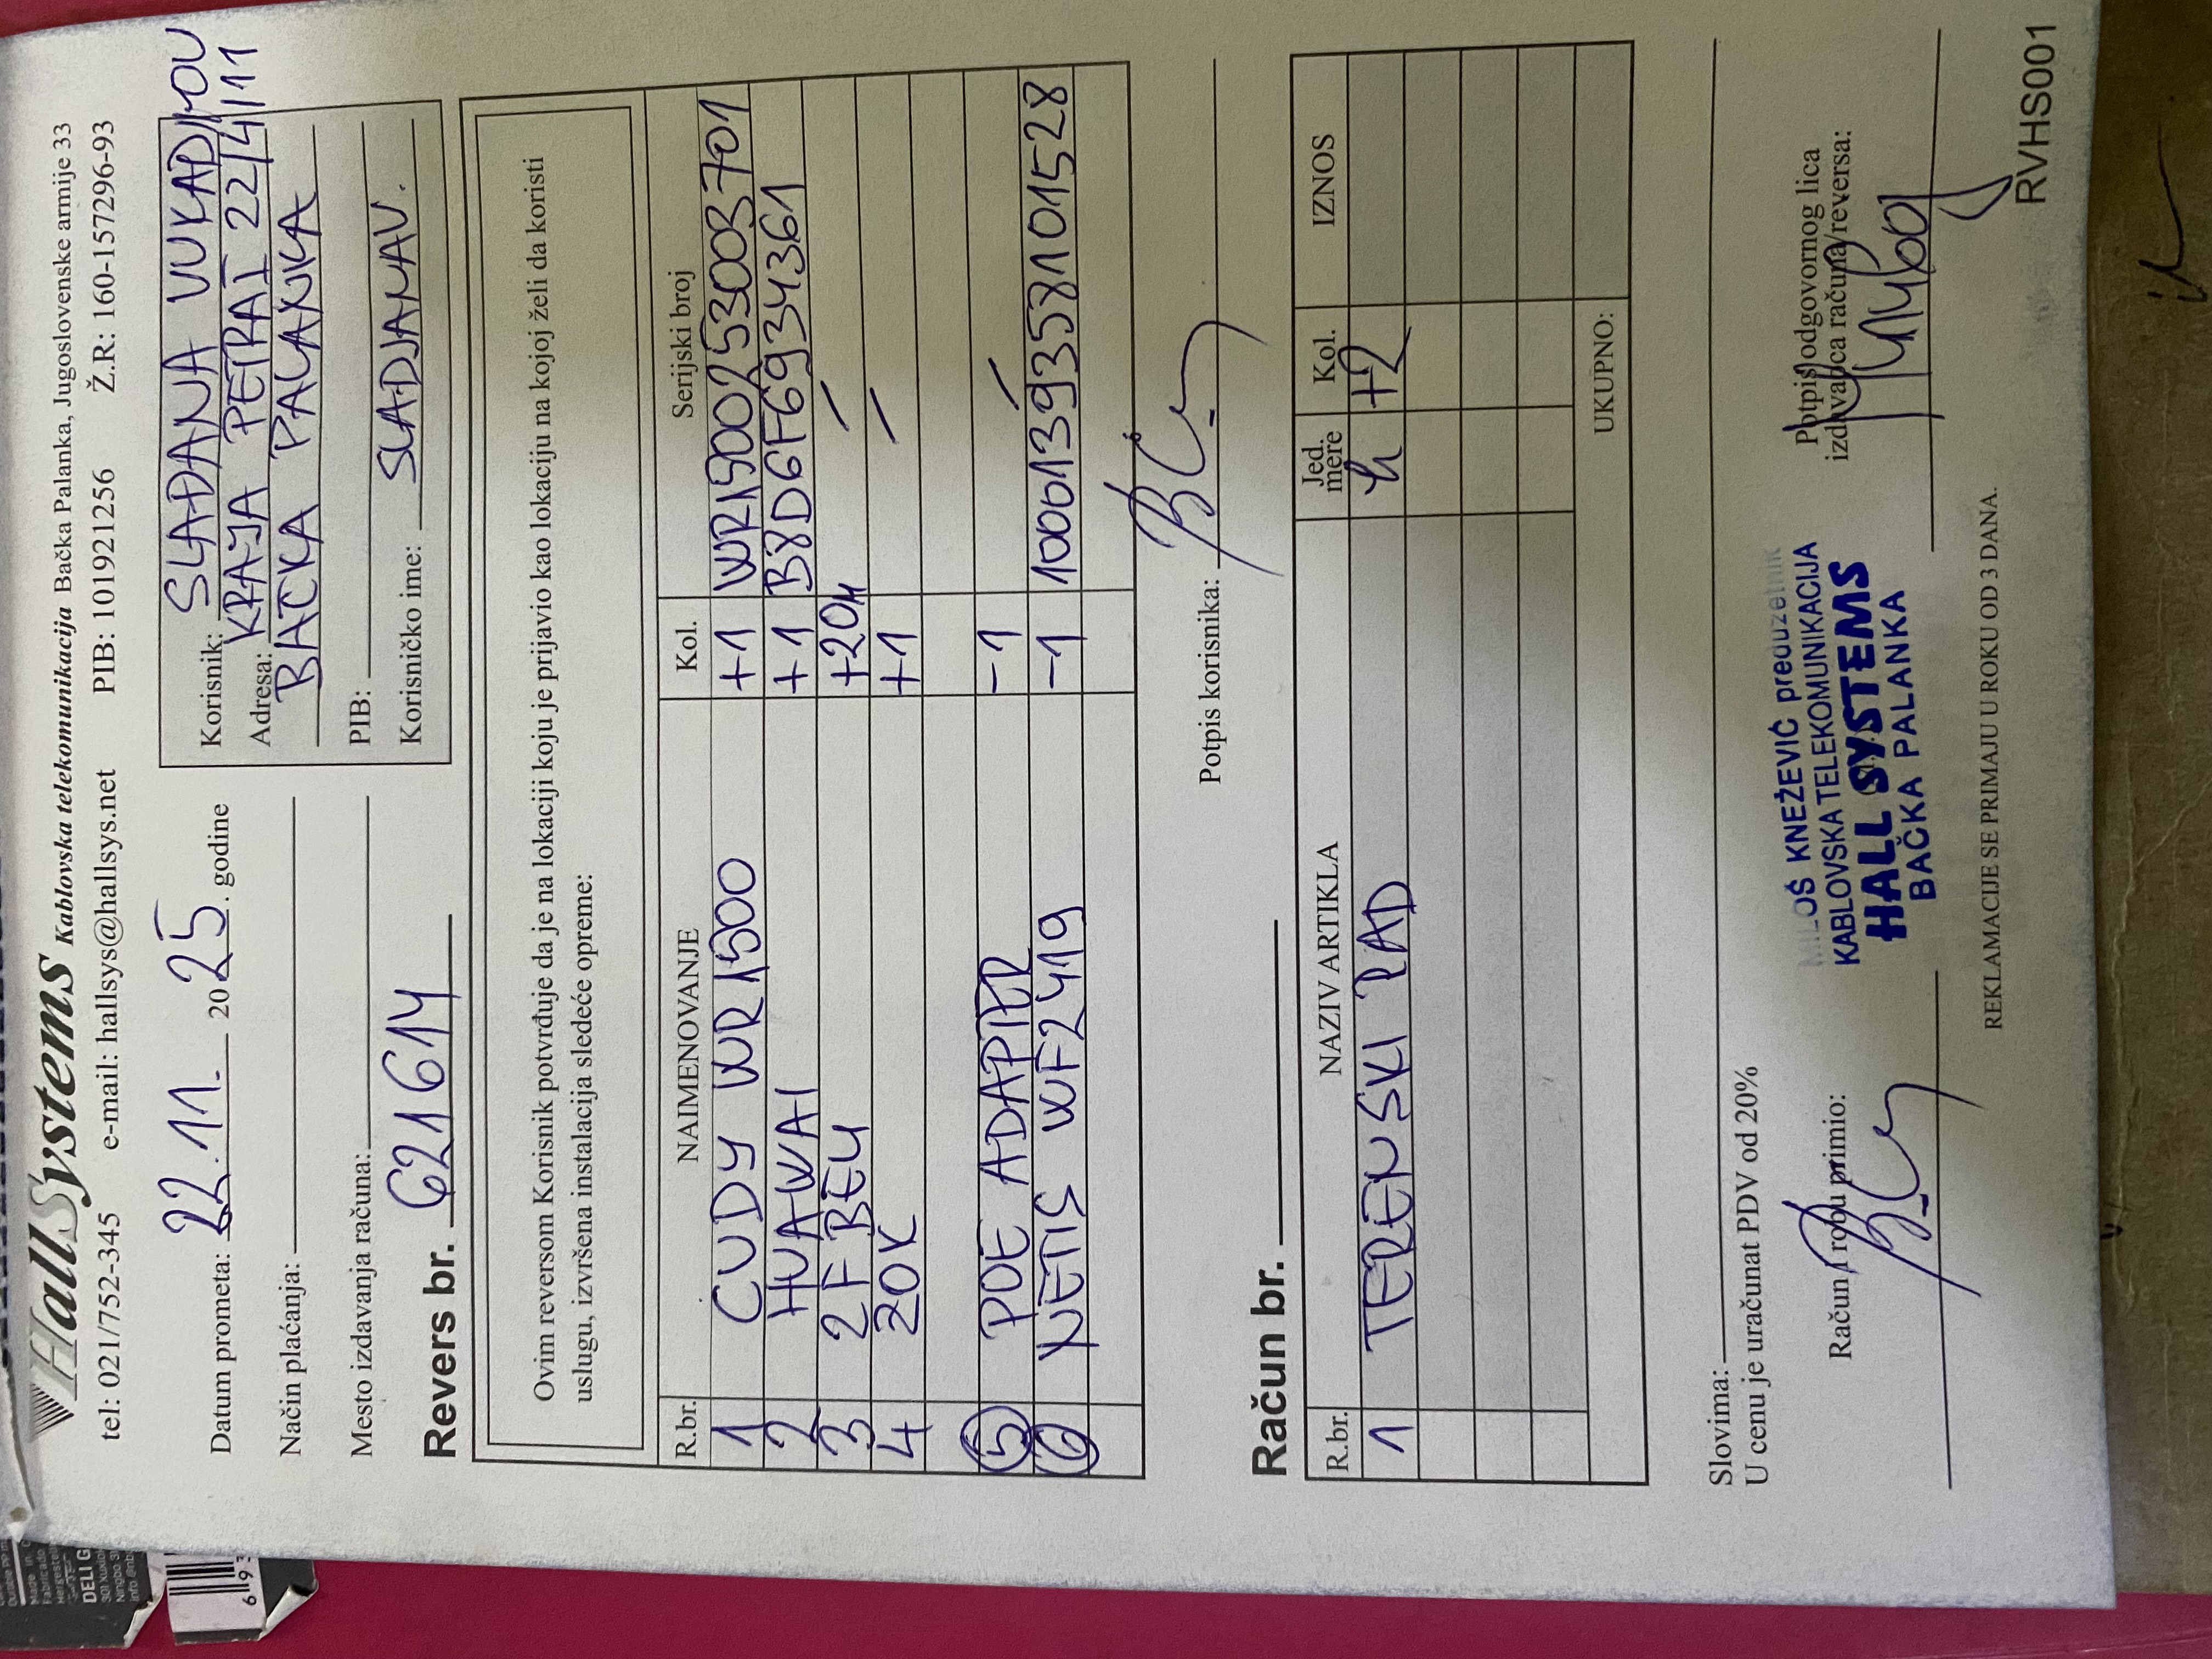 HallSystems Kablovska telekomunikacija Bačka Palanka, Jugoslovenske armije 33
tel: 021/752-345 e-mail: hallsys@hallsys.net PIB: 101921256 Ž.R: 160-1577296-93
Datum prometa: 22.11. 2025. godine
Način plaćanja:
Mesto izdavanja računa:
Korisnik: SLAĐANA VUKADINOV
Adresa: KRALJA PETRA I 22/4/11
BAČKA PALANKA
PIB:
Korisničko ime: SLADJANAV.
Revers br. 621614
Ovim reversom Korisnik potvrđuje da je na lokaciji koju je prijavio kao lokaciju na kojoj želi da koristi
uslugu, izvršena instalacija sledeće opreme:
R.br. NAIMENOVANJE Kol. Serijski broj
1 CUDY WR1500 +1 WR1500253003701
2 HUAWAI +1 B8D6F6934361
3 2F BELI +20M /
4 ZOK +1 /
5 POE ADAPTER -1 /
6 NETIS WF2419 -1 1000139358101528
Potpis korisnika:
Račun br.
R.br. NAZIV ARTIKLA Jed. mere Kol. IZNOS
1 TERENSKI RAD h +2
UKUPNO:
Slovima:
U cenu je uračunat PDV od 20%
Račun / robu primio:
MILOŠ KNEŽEVIĆ preduzetnik
KABLOVSKA TELEKOMUNIKACIJA
HALL SYSTEMS
BAČKA PALANKA
Potpis odgovornog lica
izdavaoca računa/reversa:
REKLAMACIJE SE PRIMAJU U ROKU OD 3 DANA.
RVHS001